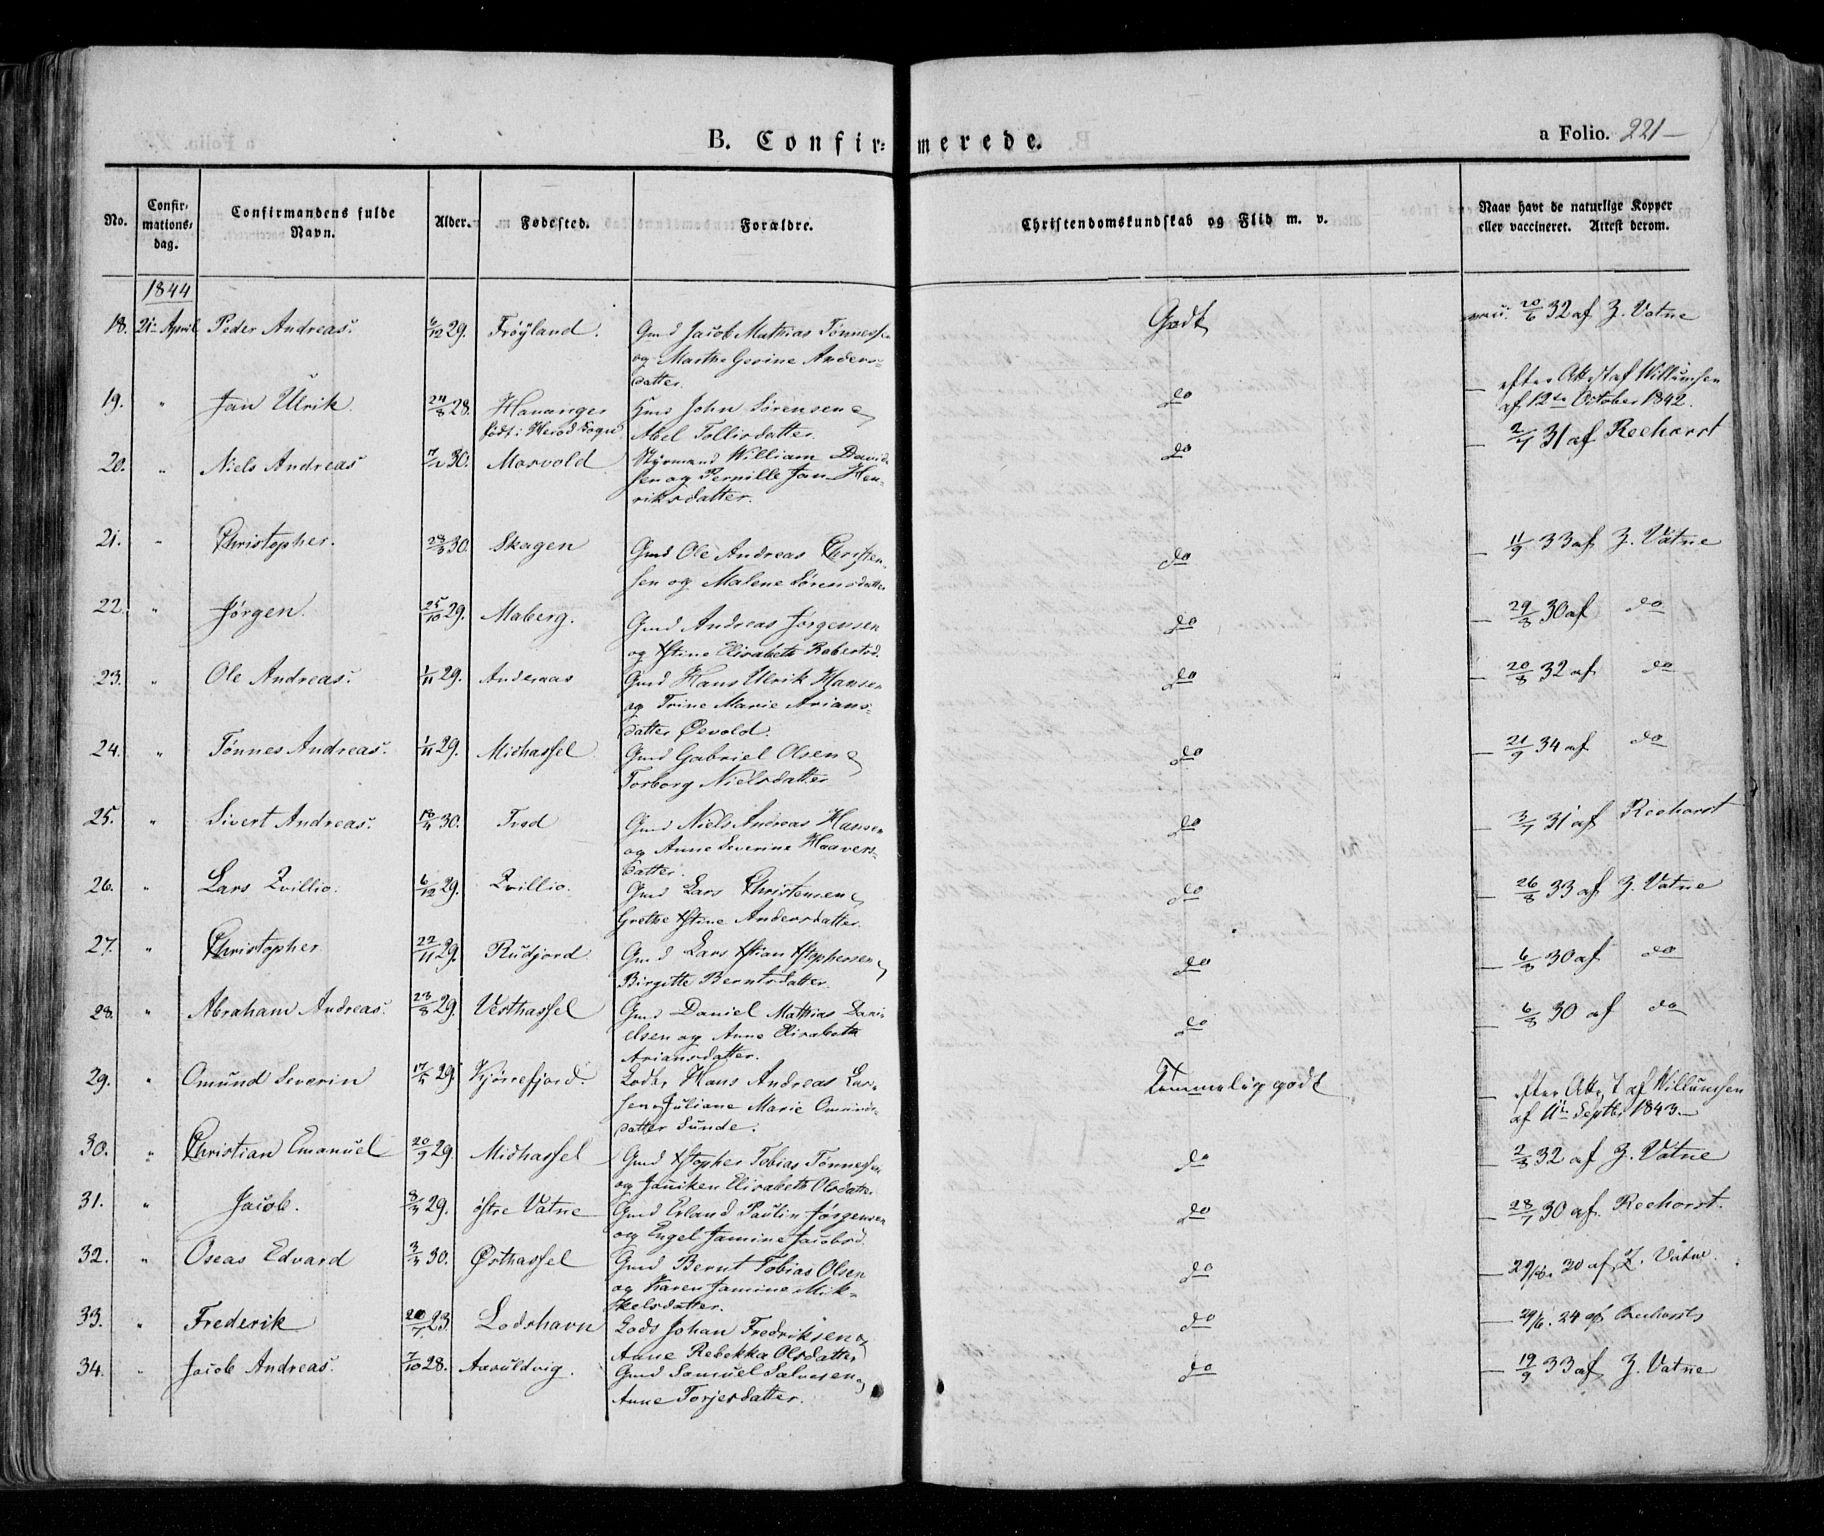 B. Confir= merede.
a Folio. 221
No. Confir, mations, dag. Confirmandens fulde Navn. Alder. Fødested. Forældre. Christendomskundskab og Flid m. v. Naar havt de naturlige Kopper eller vaccineret. Attest derom.
1844
18. 21. April Peder Andreas. 6/12 29. Frøyland. Gmd Jacob Mathias Tønnessen Godt 20/6 32 af Z. Vatne
og Marthe Gesine Anders-
datter.
19. " Jan Ulrik. 24/8 28. Hananger John Sørensen & do efter Attest af Willumsen
født i Herod Sogn Abel Tollisdatter. af 12te October 1842.
20. " Niels Andreas 30. Marvold Styrmand William David- do 31 af Reehorst
sen og Pernille Jan Hen-
riksdatter.
21. " Christopher. 28/3 30. Skagen Gmd Ole Andreas Christen- do 11/9 33 af Z. Vatne
sen og Malene Sørensdatter
22. " Jørgen. 25/10 29. Maberg. Gmd Andreas Jørgensen do 29/8 30 af do
og Xstine Elisabeth Robertsd.
23. " Ole Andreas. 1/11 29. Anderaas Gmd Hans Ulrik Hansen do 20/8 32 af do
og Trine Marie Arians-
datter Øsvold.
24. " Tønnes Andreas. 1/11 29. Midhassel Gmd Gabriel Olsen & do 21/9 34 af do
Torborg Nielsdatter
25. " Sivert Andreas. 18/4 30. Tved Gmd Niels Andreas Hansen do 3/7 31 af Reehorst
og Anne Severine Haavers-
datter.
26. " Lars Zvillio. 6/12 29. Zvillio. Gmd Lars Christensen & do 26/8 33 af Z. Vatne
Grethe Xstine Andersdatter.
27. " Christopher 22/11 29. Rudjord Gmd Lars Xstian Xstophersen & do 6/8 30 af do
Birgitte Berntsdatter.
28. " Abraham Andreas. 23/8 29. Vesthassel Gmd Daniel Mathias Dani- do 6/8 30 af do
elsen og Anne Elisabeth
Ariansdatter.
29. " Omund Severin 29. Kjørrefjord. Lods Hans Andreas Lar- Temmelig godt efter Attest af Willumsen
sen & Juliane Marie Omunds- af 11te Septbr 1843.
datter Sunde.
30. " Christian Emanuel 20/9 29. Midhassel Gmd Xstopher Tobias Tønnessen do 2/8 32 af Z. Vatne
og Janiken Elisabeth Olsdatter
31. " Jacob. 29. østre Vatne Gmd Erland Paulin Jørgensen do 28/7 30 af Reehorst.
og Engel Jamine Jacobsd.
32. " Oseas Edvard 30. Østhassel Gmd Bernt Tobias Olsen do 29/8. 30 af Z. Vatne.
og Karen Jamine Mik-
kelsdatter.
33. " Frederik 20/7 23. Lodshavn Lods Johan Fredriksen & do 29/6. 24 af Reehorst
Anne Rebekka Olsdatter
34. " Jacob Andreas. 7/10 28. Aavuldvig. Gmd Samuel Salvesen & do 19/9 33 af Z. Vatne
Anne Torjersdatter.